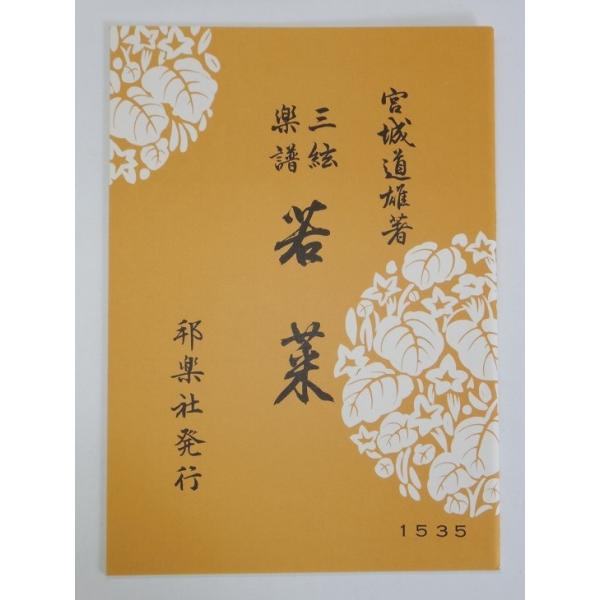 宮城道雄著
三絃
楽譜
若菜
邦楽社発行
1535